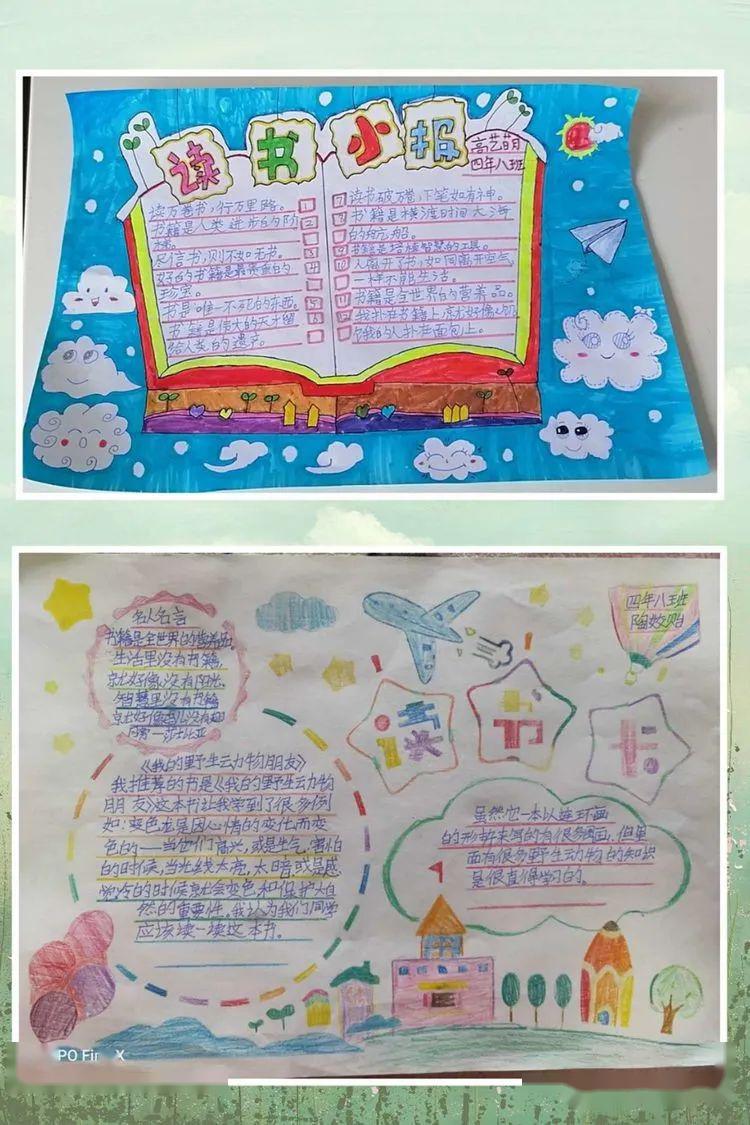 读书小报
高艺萌
四年八班
读万卷书,行万里路。 1
书籍是人类进步的阶 2
梯。
尽信书,则不如无书。 3
好的书籍是最贵重的 4
珍宝。
书是唯一不死的东西。 5
书籍是伟大的天才留 6
给人类的遗产。
7 读书破万卷,下笔如有神。
8 书籍是横渡时间大海
的航船。
9 书籍是培植智慧的工具。
10 人离开了书,如同离开空气
一样不能生活。
11 书籍是全世界的营养品。
12 我扑在书籍上,就好像饥
饿的人扑在面包上。
名人名言
书籍是全世界的营养品,
生活里没有书籍,
就好像没有阳光,
智慧里没有书籍
就好像鸟儿没有翅
膀—莎士比亚
四年八班
陶效贻
读书卡
《我的野生动物朋友》
我推荐的书是《我的野生动物
朋友》这本书让我学到了很多例
如:变色龙是因心情的变化而变
色的——当他们高兴,或是生气,害怕
的时候,当光线太亮,太暗,或是感
到冷的时候就会变色和保护大自
然的重要性。我认为我们同学
应该读一读这本书。
虽然它一本以连环画
的形式来写的有很多画,但里
面有很多野生动物的知识
是很值得学习的。